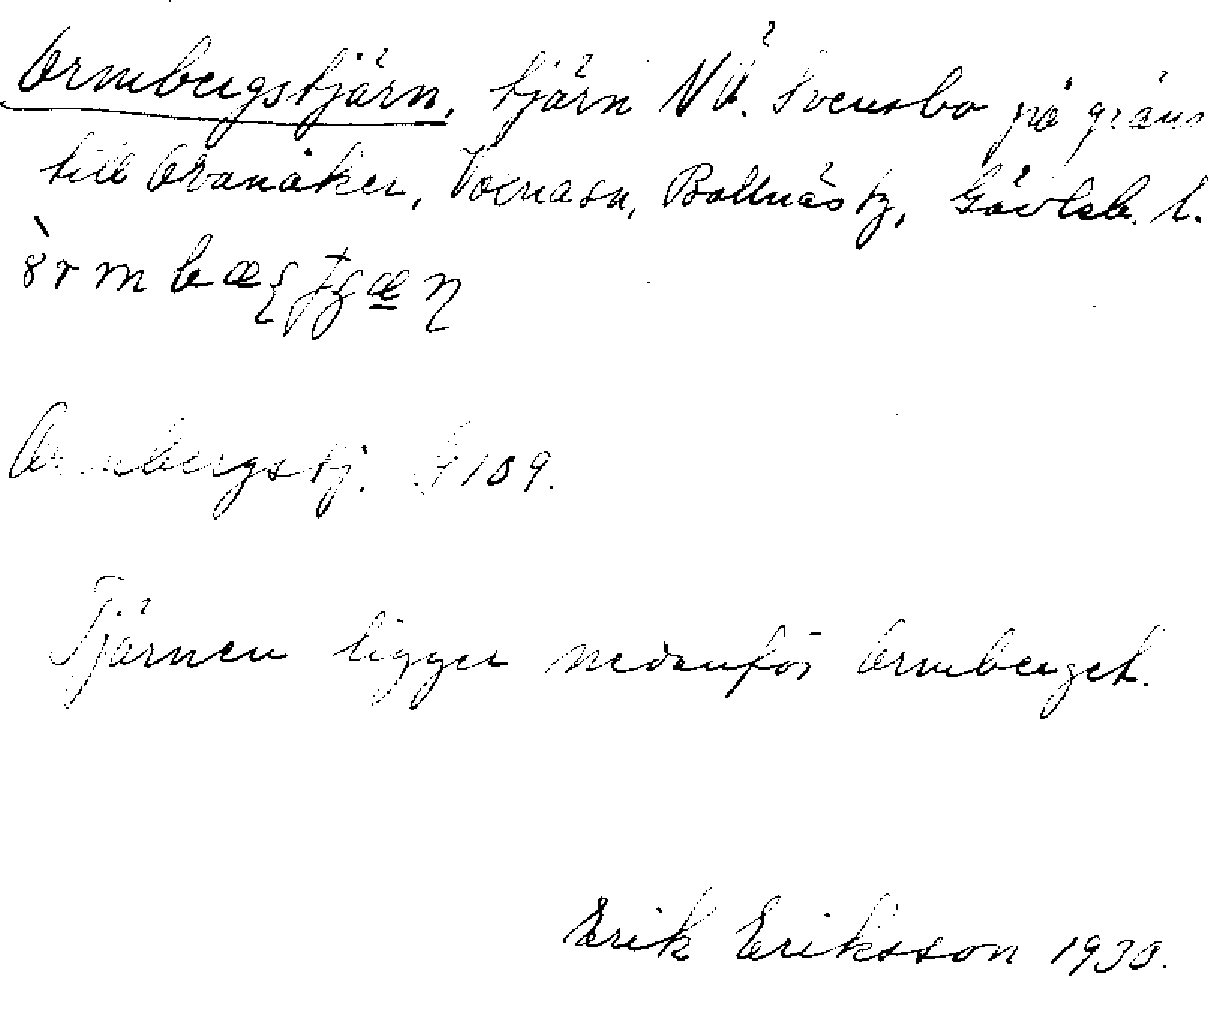 Ormbergstjärn, tjärn NÖ. Svensbo på gräns
till Ovanåker, Voxna sn, Bollnäs tg, Gävleb. l.
Ormbergstj. G 109.
Tjärnen ligger nedanför Ormberget.
Erik Eriksson 1930.